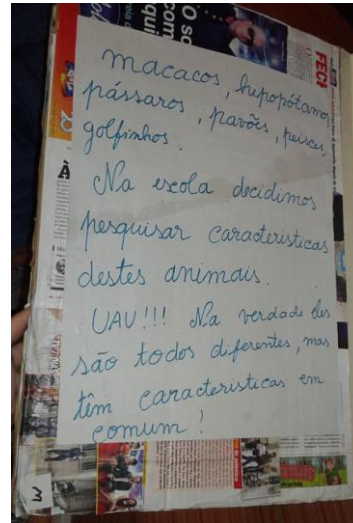 macacos, hipopótamos,
pássaros, pavões, peixes,
golfinhos.
Na escola decidimos
pesquisar caracteristicas
destes animais.
UAU!!! Na verdade eles
são todos diferentes, mas
têm caracteristicas em
comum!
3